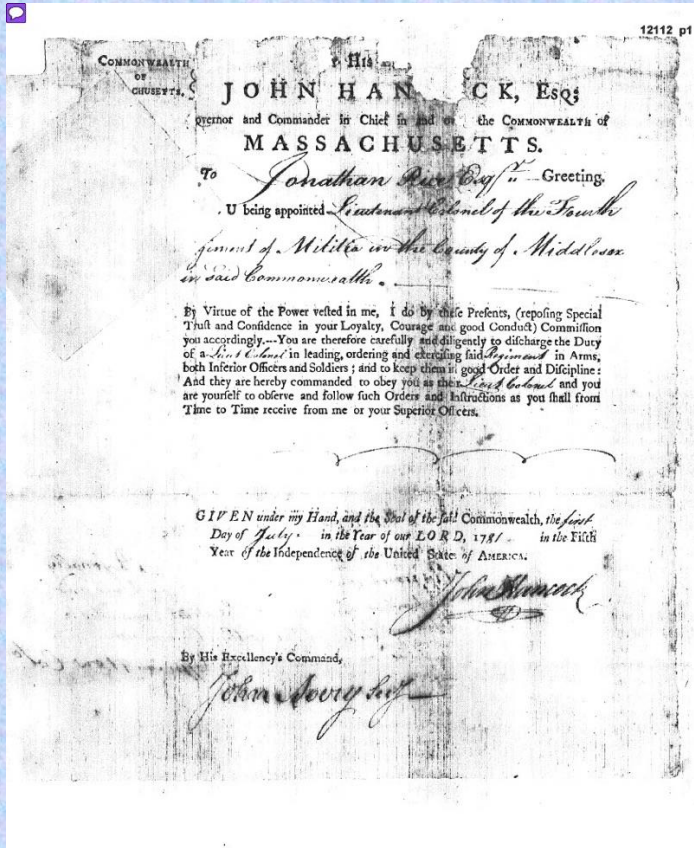 12112 p1
COMMONWEALTH
OF
CHUSETTS.
His
JOHN HAN CK, Esq;
vernor and Commander in Chief in and ov the COMMONWEALTH of
MASSACHUSETTS.
To Jonathan Rice Esqr. Greeting.
U being appointed Lieutenant Colonel of the Fourth
giment of Militia in the County of Middlesex
in said Commonwealth.
By Virtue of the Power vested in me, I do by these Presents, (reposing Special
Trust and Confidence in your Loyalty, Courage and good Conduct) Commission
you accordingly.---You are therefore carefully and diligently to discharge the Duty
of a Lieut Colonel in leading, ordering and exercising said Regiment in Arms,
both Inferior Officers and Soldiers; and to keep them in good Order and Discipline:
And they are hereby commanded to obey you as their Lieut Colonel and you
are yourself to observe and follow such Orders and Instructions as you shall from
Time to Time receive from me or your Superior Officers.
GIVEN under my Hand, and the Seal of the said Commonwealth, the first
Day of July. in the Year of our LORD, 1781. in the Fifth
Year of the Independence of the United States of AMERICA.
John Hancock
By His Excellency's Command,
John Avery Secy